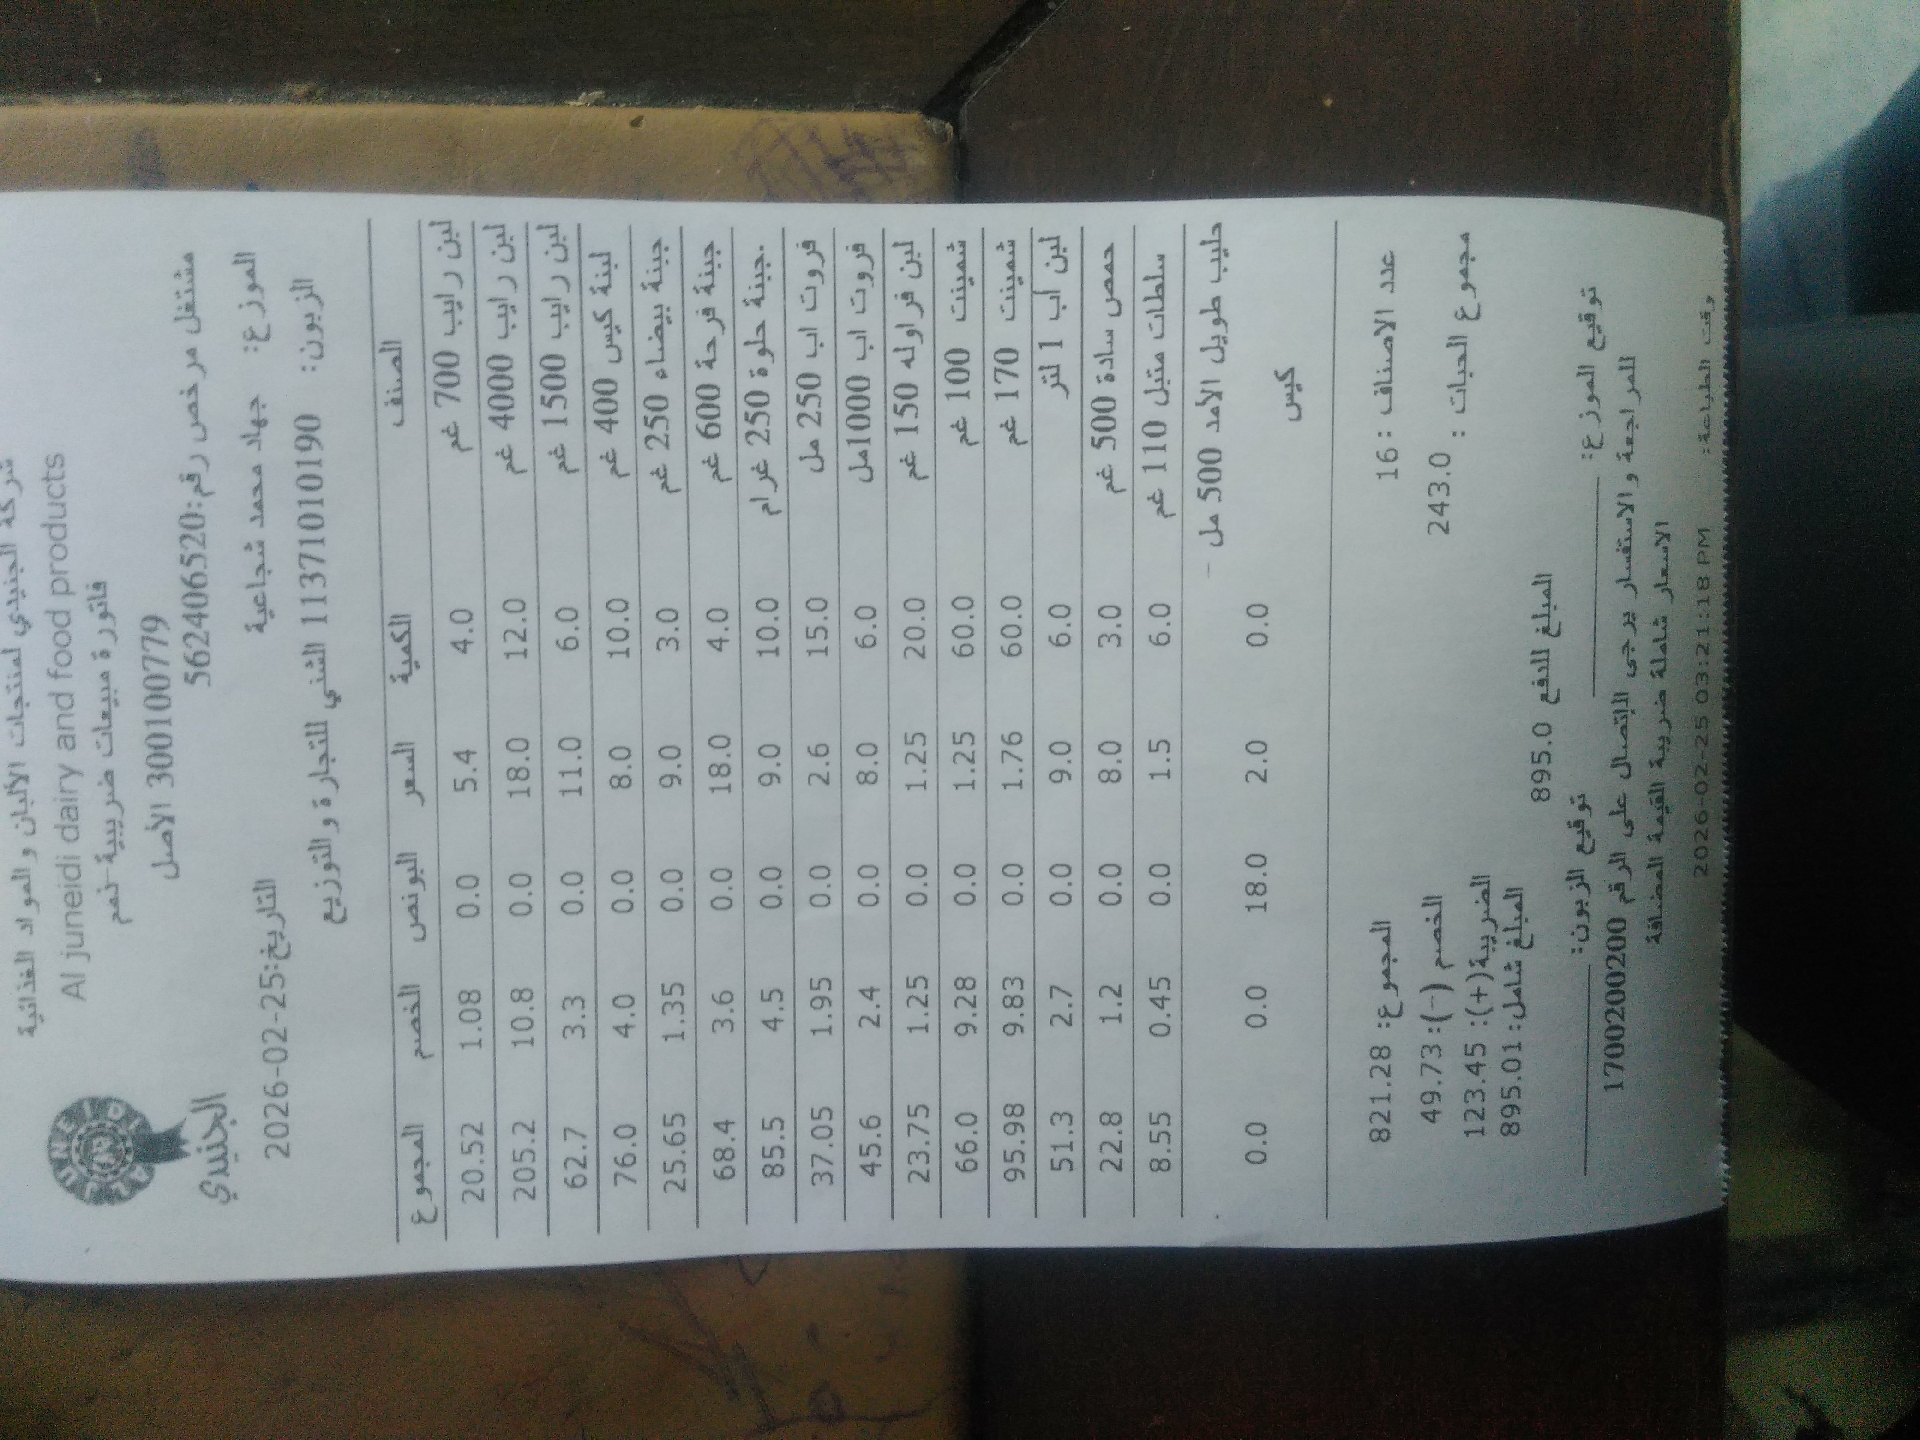 شركة الجنيدي لمنتجات الألبان والمواد الغذائية
Al juneidi dairy and food products
فاتورة مبيعات ضريبية-نعم
300100779 الأصل
مشتغل مرخص رقم:562406520
الجنيدي
الموزع: جهاد محمد شجاعية
التاريخ:2026-02-25
الزبون: 1137101190 الشني للتجارة والتوزيع
الصنف الكمية السعر البونص الخصم المجموع
لبن رايب 700 غم 4.0 5.4 0.0 1.08 20.52
لبن رايب 4000 غم 12.0 18.0 0.0 10.8 205.2
لبن رايب 1500 غم 6.0 11.0 0.0 3.3 62.7
لبنة كيس 400 غم 10.0 8.0 0.0 4.0 76.0
جبنة بيضاء 250 غم 3.0 9.0 0.0 1.35 25.65
جبنة فرحة 600 غم 4.0 18.0 0.0 3.6 68.4
جبنة حلوة 250 غرام 10.0 9.0 0.0 4.5 85.5
فروت اب 250 مل 15.0 2.6 0.0 1.95 37.05
فروت اب 1000مل 6.0 8.0 0.0 2.4 45.6
لبن فراوله 150 غم 20.0 1.25 0.0 1.25 23.75
شمينت 100 غم 60.0 1.25 0.0 9.28 66.0
شمينت 170 غم 60.0 1.76 0.0 9.83 95.98
لبن أب 1 لتر 6.0 9.0 0.0 2.7 51.3
حمص سادة 500 غم 3.0 8.0 0.0 1.2 22.8
سلطات متبل 110 غم 6.0 1.5 0.0 0.45 8.55
حليب طويل الأمد 500 مل -
كيس 0.0 2.0 18.0 0.0 0.0
عدد الاصناف : 16
المجموع: 821.28
مجموع الحبات : 243.0
الخصم (-): 49.73
الضريبة(+): 123.45
المبلغ شامل: 895.01
المبلغ للدفع 895.0
توقيع الموزع: توقيع الزبون:
للمراجعة والاستفسار يرجى الإتصال على الرقم 1700200200
الاسعار شاملة ضريبة القيمة المضافة
وقت الطباعة: 2026-02-25 03:21:18 PM